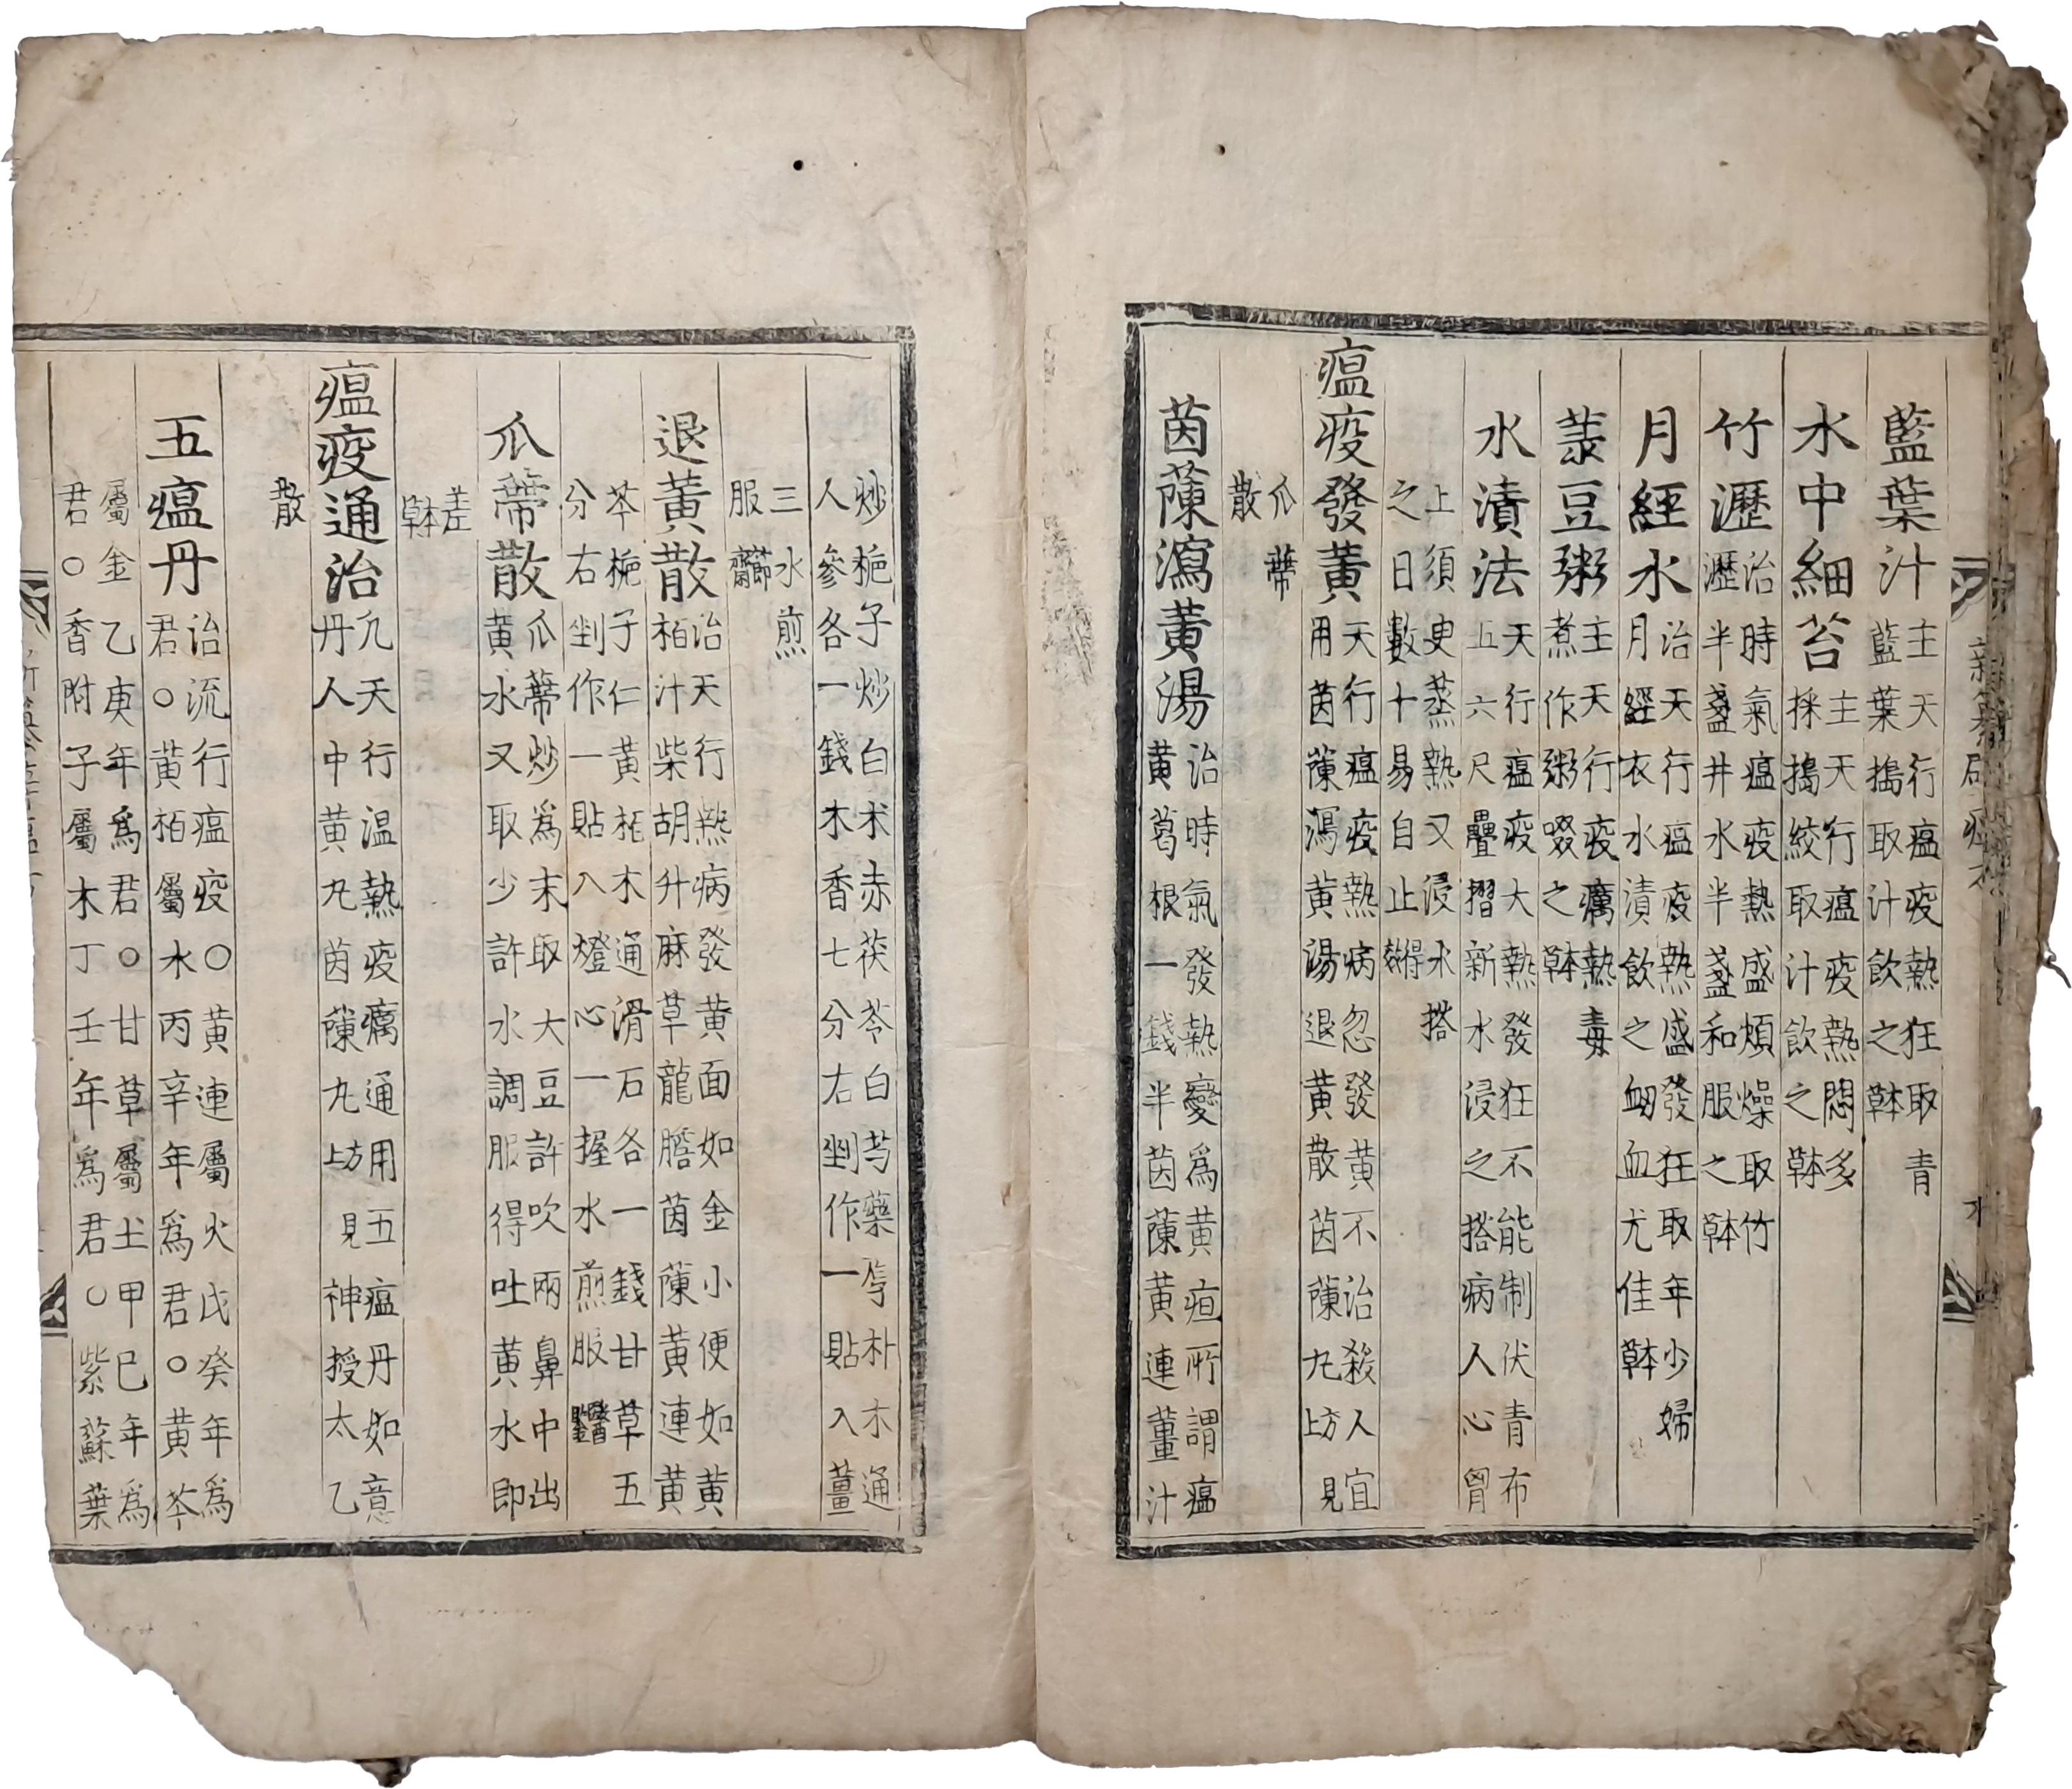 藍葉汁主天行瘟疫熱狂取青
藍葉搗取汁飲之本草
水中細苔主天行瘟疫熱悶多
採搗絞取汁飲之本草
竹瀝治時氣瘟疫熱盛煩燥取竹
瀝半盞井水半盞和服之本草
月經水治天行瘟疫熱盛發狂取年少婦
月經衣水漬飲之衂血尤佳本草
菉豆粥主天行疫癘熱毒
煮作粥啜之本草
水漬法天行瘟疫大熱發狂不能制伏青布
五六尺疊摺新水浸之搭病人心胷
上須臾蒸熱又浸水搭
之日數十易自止得效
瘟疫發黃天行瘟疫熱病忽發黃不治殺人宜
用茵蔯瀉黃湯退黃散茵蔯丸方見上
瓜蔕
散
茵蔯瀉黃湯治時氣發熱變爲黃疸所謂瘟
黃葛根一錢半茵蔯黃連薑汁
炒梔子炒白朮赤茯苓白芍藥厚朴木通
人參各一錢木香七分右剉作一貼入薑
三水煎
服節齋
退黃散治天行熱病發黃面如金小便如黃
栢汁柴胡升麻草龍膽茵蔯黃連黃
芩梔子仁黃栢木通滑石各一錢甘草五
分右剉作一貼入燈心一握水煎服醫鑑
瓜蔕散瓜蔕炒爲末取大豆許吹兩鼻中出
黃水又取少許水調服得吐黃水即
差
本草
瘟疫通治凡天行温熱疫癘通用五瘟丹如意
丹人中黃丸茵蔯丸方見上神授太乙
散
五瘟丹治流行瘟疫○黃連屬火戊癸年爲
君○黃栢屬水丙辛年爲君○黃芩
屬金乙庚年爲君○甘草屬土甲巳年爲
君○香附子屬木丁壬年爲君○紫蘇葉